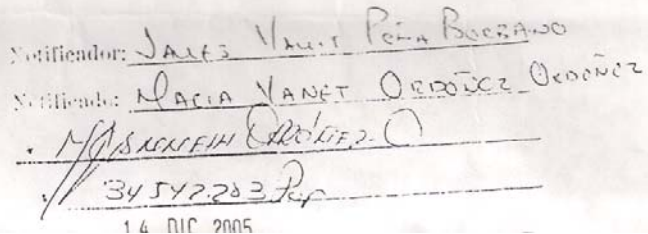 Notificador: James Yamit Peña Burbano
Notificado: Maria Yanet Ordoñez Ordoñez
Ordóñez O
34547283 Pop
14 DIC 2005